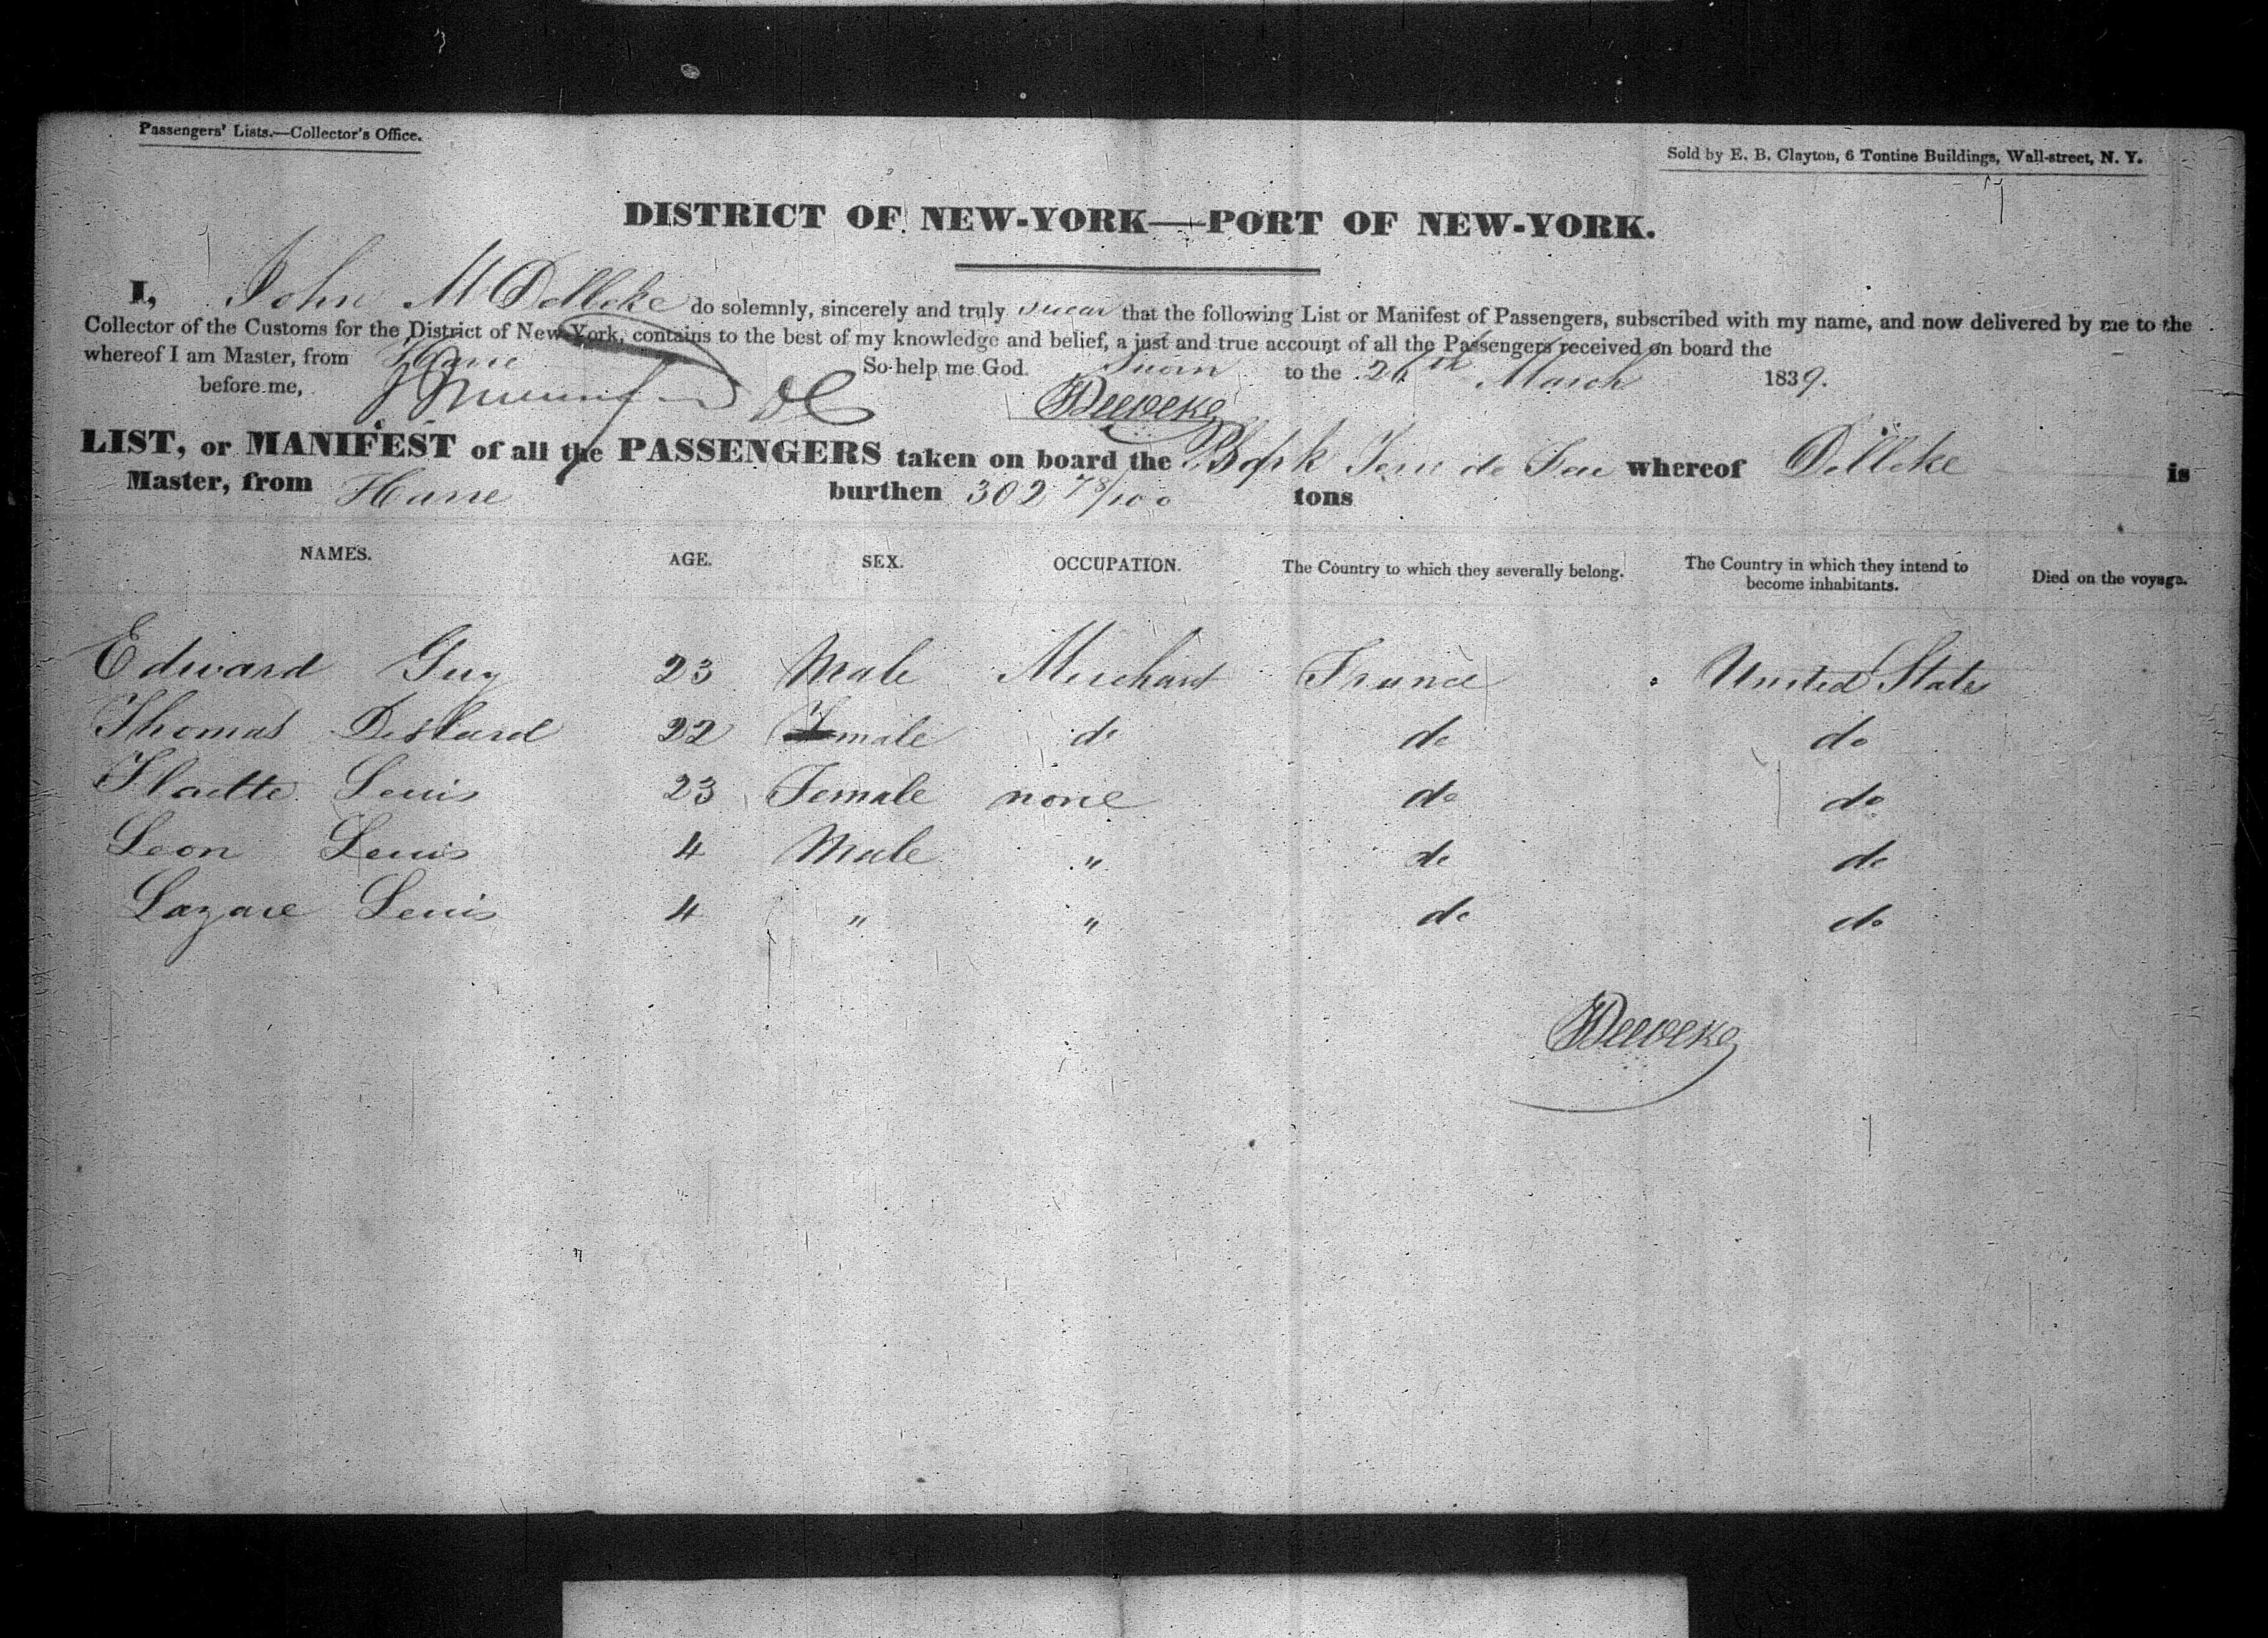 Passengers' Lists.—Collector's Office.
Sold by E. B. Clayton, 6 Tontine Buildings, Wall-street, N. Y.
DISTRICT OF NEW-YORK—PORT OF NEW-YORK.
I, John M do solemnly, sincerely and truly swear that the following List or Manifest of Passengers, subscribed with my name, and now delivered by me to the
Collector of the Customs for the District of New-York, contains to the best of my knowledge and belief, a just and true account of all the Passengers received on board the
whereof I am Master, from Havre So help me God. Sworn to the 26th March 1839.
before me,
LIST, or MANIFEST of all the PASSENGERS taken on board the de whereof is
Master, from Havre burthen 302 78/100 tons
NAMES. AGE. SEX. OCCUPATION. The Country to which they severally belong. The Country in which they intend to become inhabitants. Died on the voyage.
Edward Guy 23 Male Merchant France United States
Thomas 22 male do do do
Louis 23 Female none do do
Leon Louis 4 Male " do do
Lazare Louis 4 " " do do